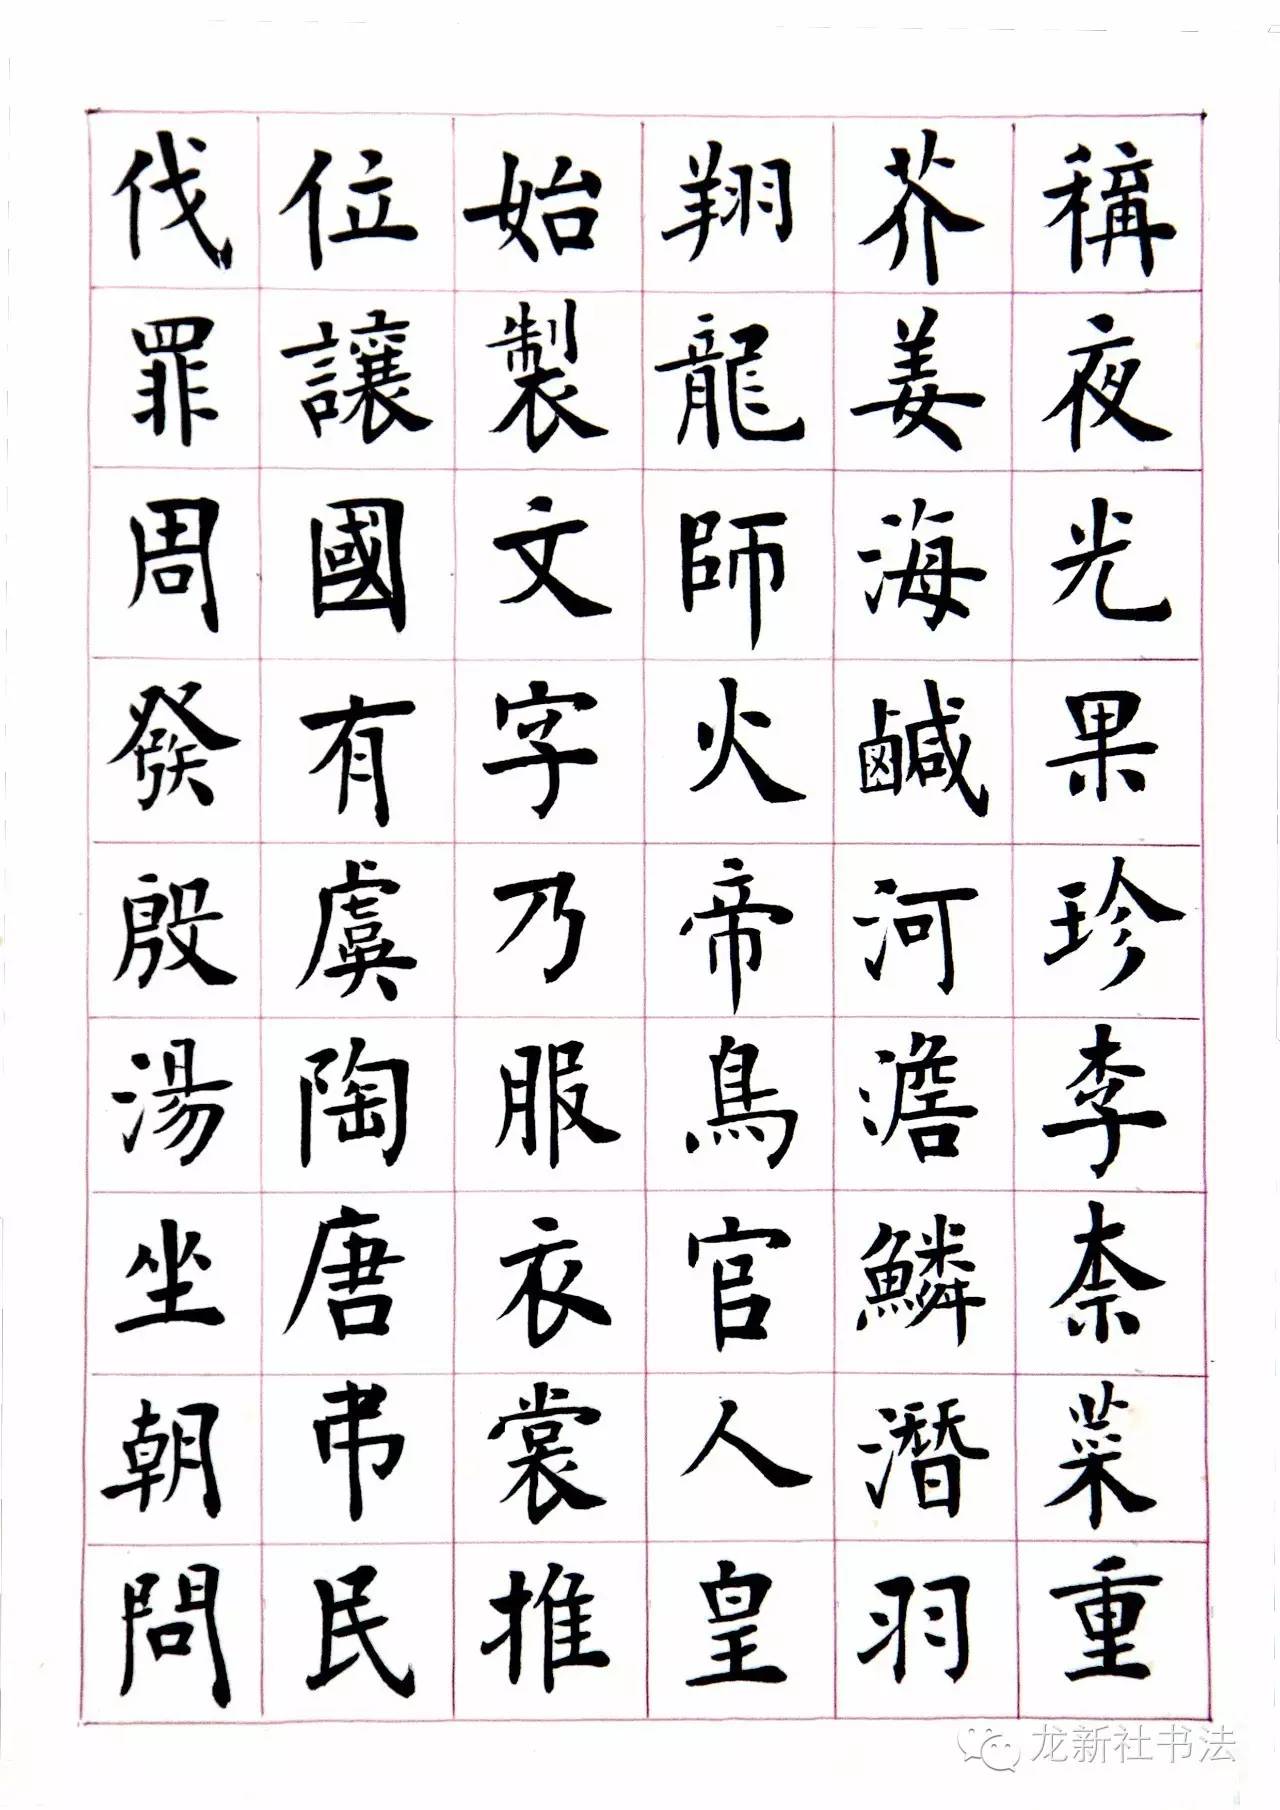 稱夜光果珍李柰菜重
芥姜海鹹河澹鱗潛羽
翔龍師火帝鳥官人皇
始製文字乃服衣裳推
位讓國有虞陶唐弔民
伐罪周發殷湯坐朝問
龙新社书法